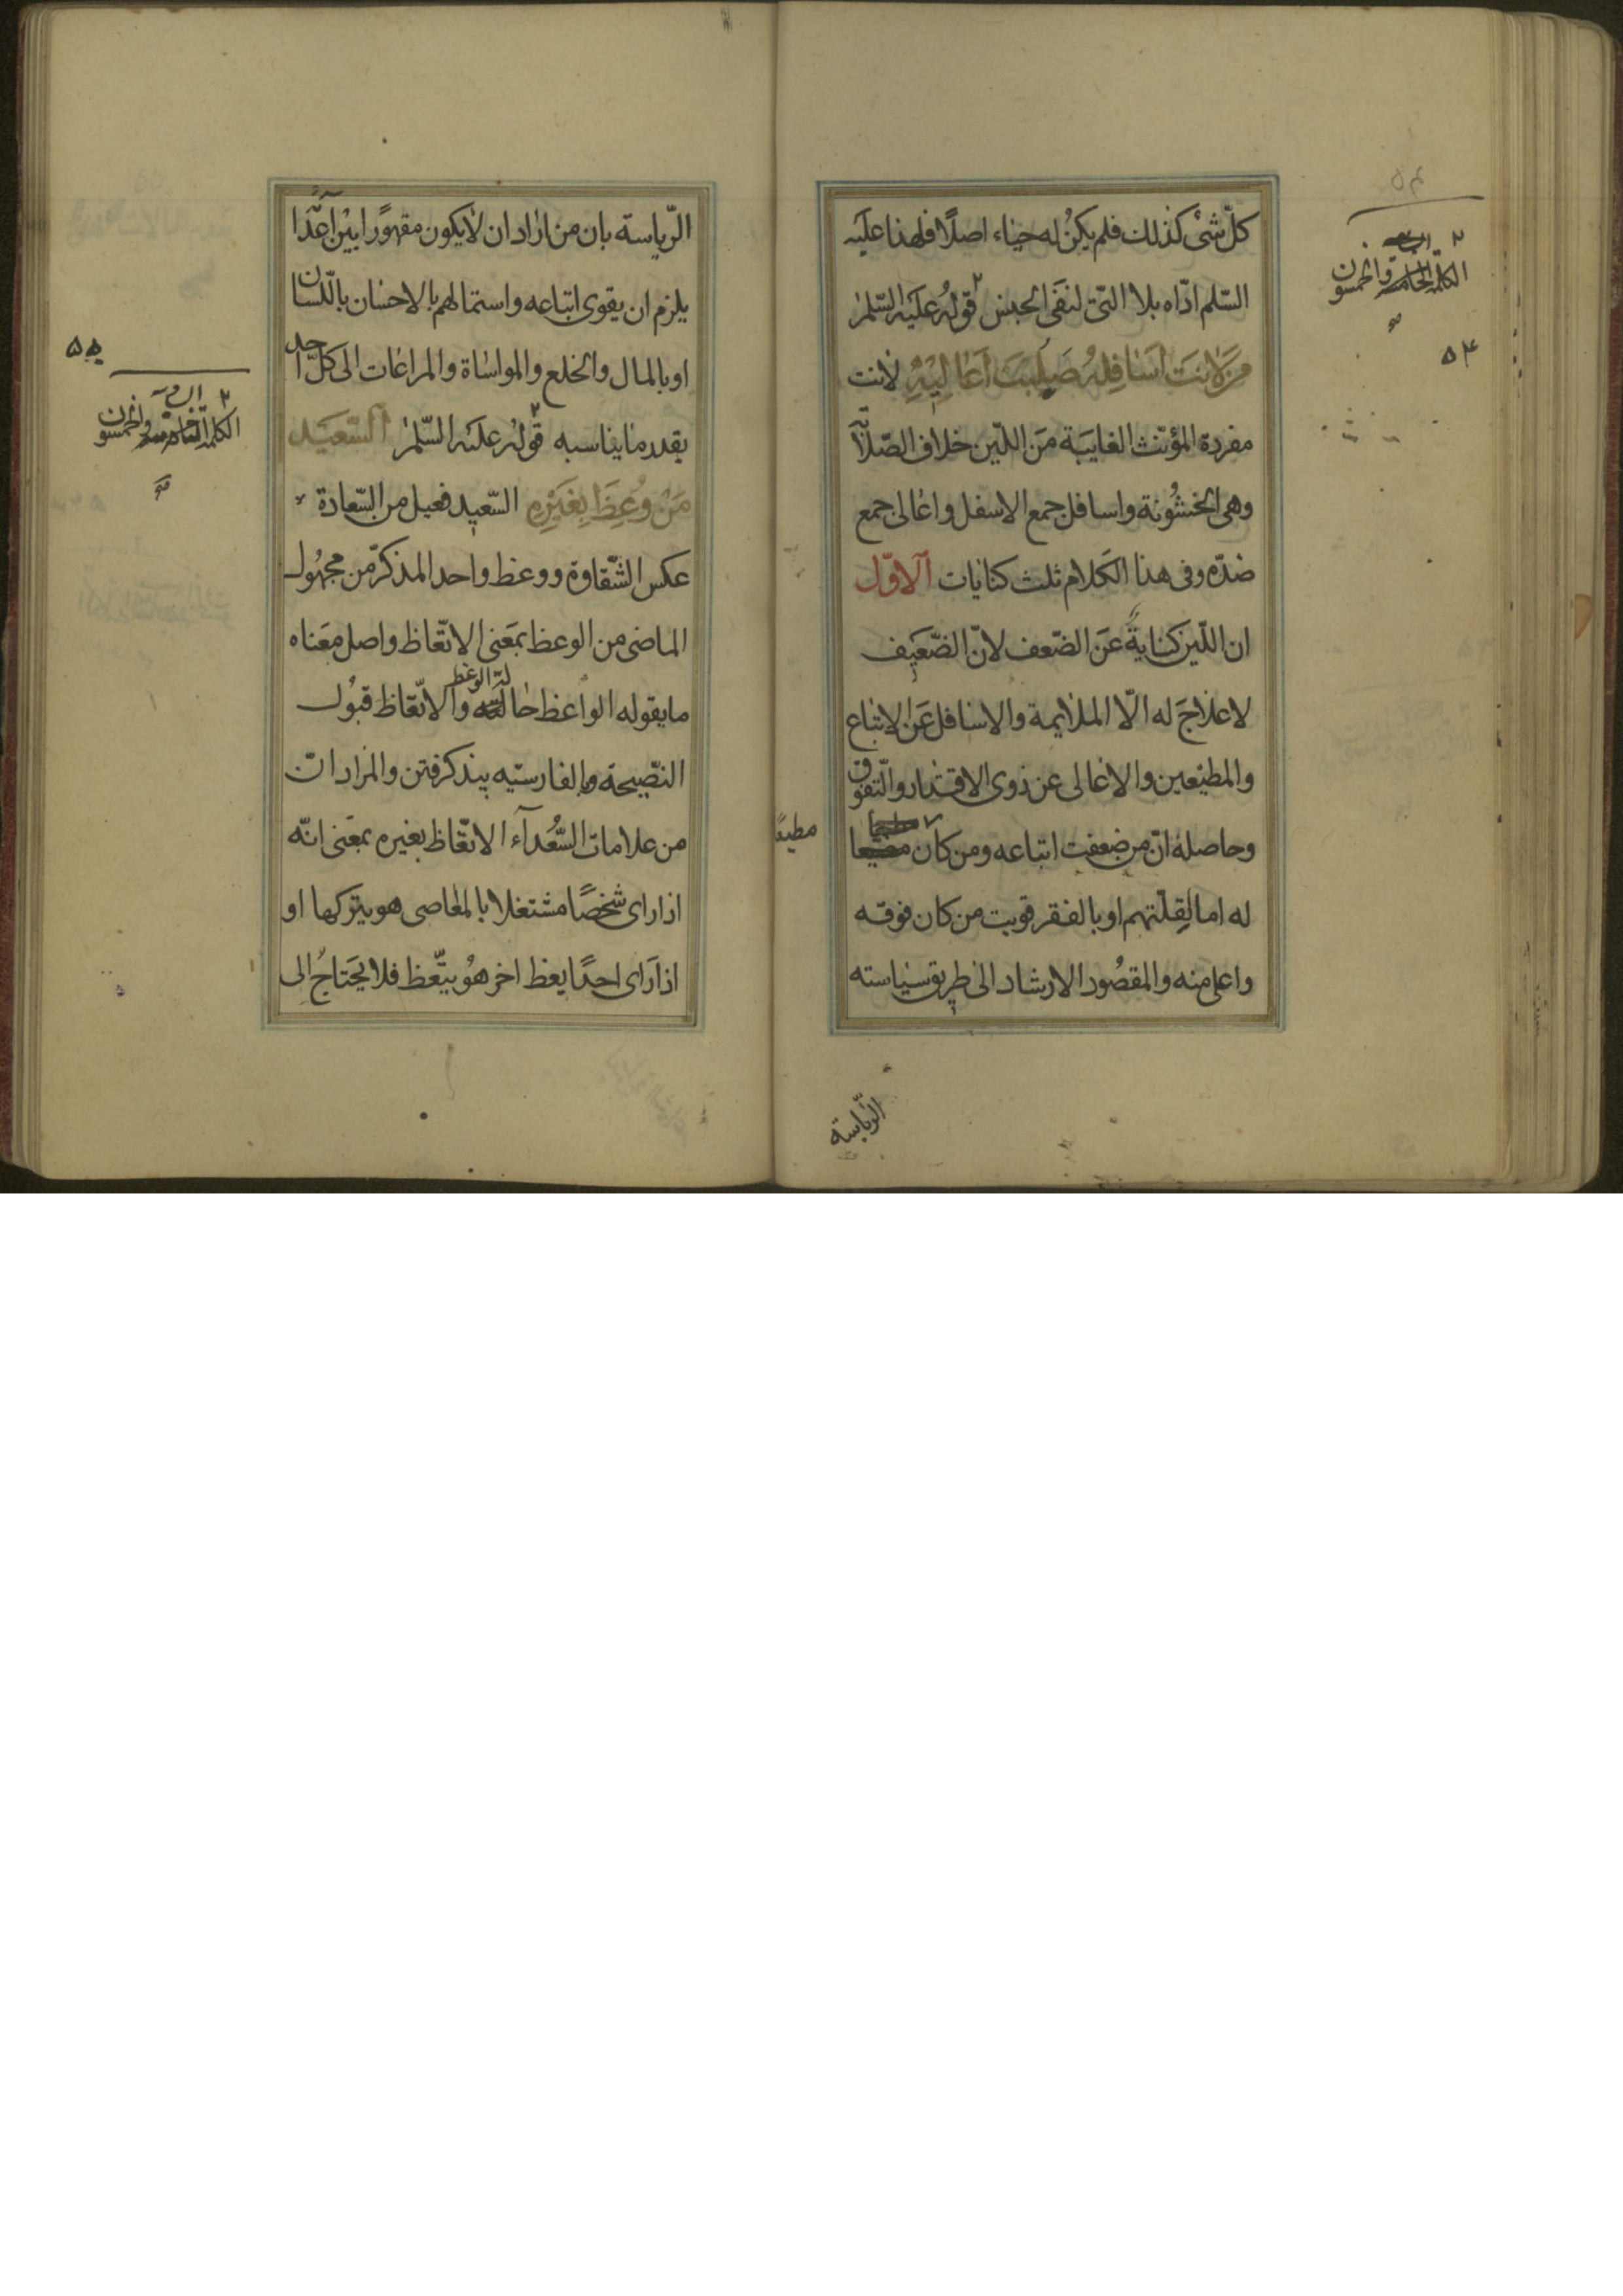 كلّ شئ كذلك فلم يكنُ له حياء اصلًا فلهذا عليه
السّلم ادّاه بلا الّتى لنفى الجنس قولُه عليه السّلم
مَن لانَت اَسَافِلُه صَلُبَت اَعَاليْهِ لانت
مفردة المؤنث الغايبَة مَن اللّين خلاف الصّلاَبَة
وهى الخشُونة واسافل جمع الاسفل واعالى جمع
ضدّه وفى هذا الكلام ثلث كنايات الاوّل
ان اللّين كنايةً عَن الضّعف لانّ الضّعيف
لا علاجَ له الّا الملايمة والاسافل عَن الاتباع
والمطيعين والاعالى عن ذوى الاقتدار والتّفوّق
وحاصله انّ من ضعفت اتباعه ومن كان
مطيعًا
له اما لِقلّتهم او بالفقر قويت من كان فوقه
واعلى منه والمقصُود الارشاد الى طريق سياسته
الرّياسة
الكلمة الرابعة والخمسون
۵۴
الرّياسة بان من اراد ان لا يكون مقهورًا بيْن اعَدا
يلزم ان يقوى اتباعه واستمالهم بالاحسان باللّسان
او بالمال والخلع والمواساة والمراعات الى كلّ احد
بقدر ما يناسبه قولُه عليه السّلم السّعيَد
مَنْ وُعِظَ بِغَيْرِهِ السّعيد فعيل من السّعادة
عكس الشّقاوة ووعظ واحد المذكّر من مجهُول
الماضى من الوعظ بمَعنى الاتّعاظ واصل معَناه
ما يقوله الواعظ حالة الوعظ والاتّعاظ قبُول
النّصيحة وبالفارسيّه پند گرفتن والمراد انّ
من علامات السُّعَداۤء الاتّعاظ بغيره بمعَنى انّه
اذا راى شخصًا مشتغلا بالمعاصى هو يتركها او
اذا رَاى احدًا يعظ اخر هُو يتّعظ فلا يحَتاجُ الى
۵۵
الكلمة والخمسون